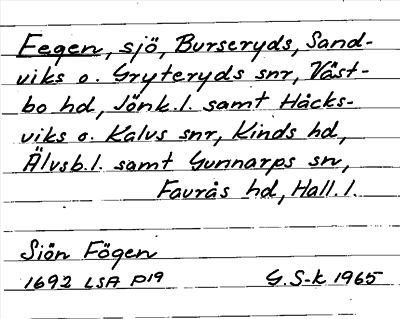 Fegen, sjö, Burseryds, Sand-
viks o. Gryteryds snr, Väst-
bo hd, Jönk.l. samt Håcks-
viks o. Kalvs snr, Kinds hd,
Älvsb.l. samt Gunnarps sn,
Faurås hd, Hall.l.
Siön Fögen
1692 LSA P19 G.S-k 1965